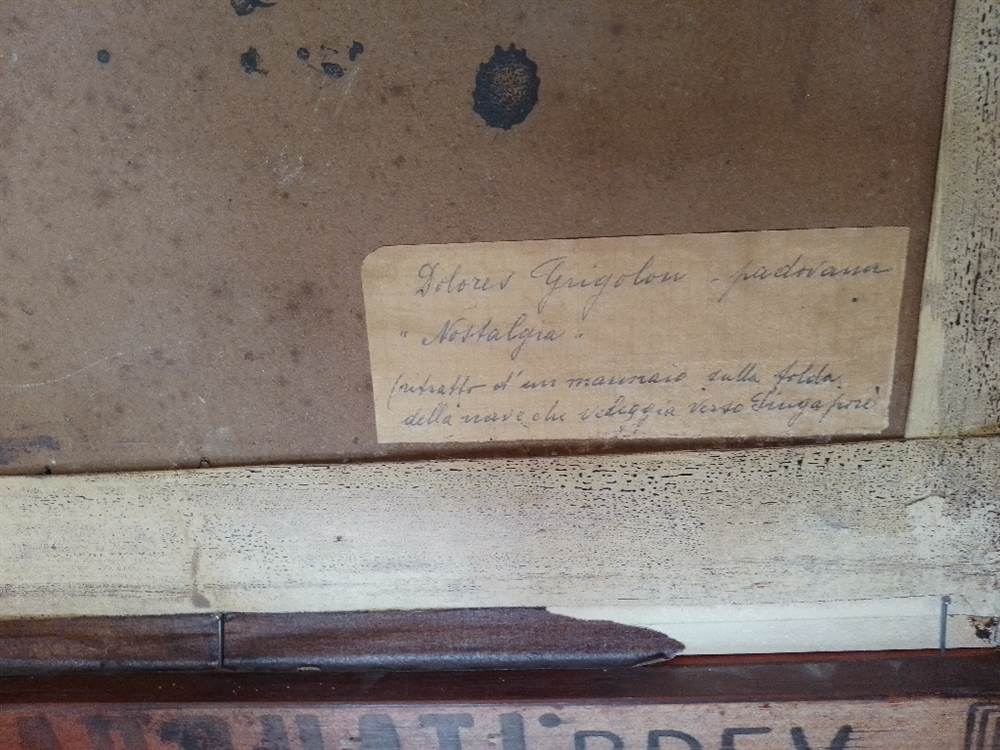 Dolores Grigolon - padovana
"Nostalgia"
(ritratto d'un marinaio sulla tolda
della nave che veleggia verso Singapore)